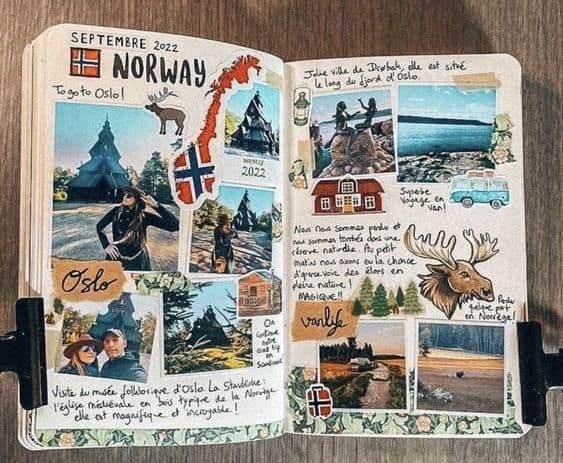 SEPTEMBRE 2022
NORWAY
To go to Oslo!
2022
Oslo
On
continue
notre
road trip
en
Scandinavie
Visite du musée folklorique d'Oslo. La Stavkirke:
l'église médiévale en bois typique de la Norvège
elle est magnifique et incroyable!
Jolie ville de Drøbak, elle est située
le long du fjord d'Oslo.
Superbe
voyage en
van!
Nous nous sommes perdu et
nous sommes tombés dans une
réserve naturelle. Au petit
matin nous avons eu la chance
d'apercevoir des élans en
pleine nature!
MAGIQUE!!
Perdu
quelque part
en Norvège!
vanlife